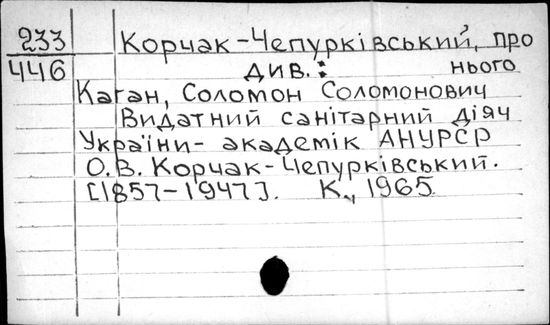 233 Корчак-Чепурківський, про
446 див.: нього
Каган, Соломон Соломонович
Видатний санітарний діяч
України- академік АНУРСР
О.В. Корчак-Чепурківський.
[1857-1947]. К., 1965